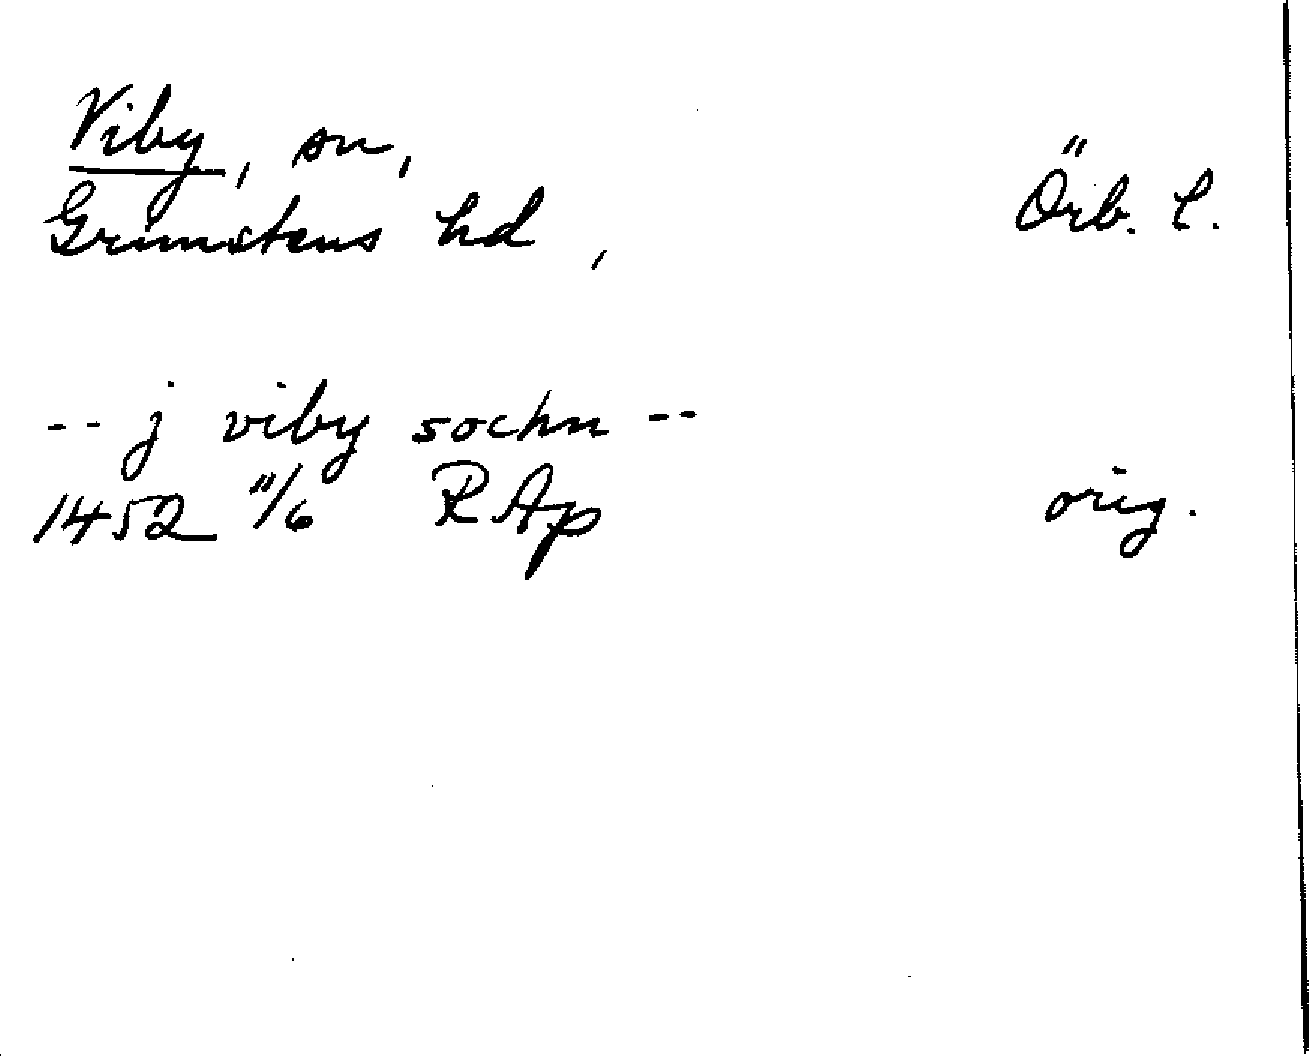 Viby, sn,
Grimstens hd, Örb. l.
-- j viby sochn --
1452 11/6 RAp orig.